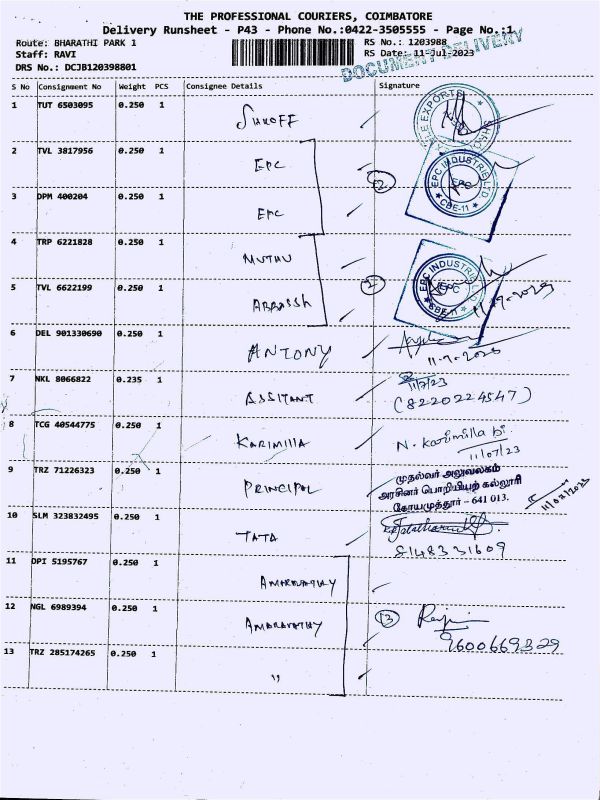 THE PROFESSIONAL COURIERS, COIMBATORE
Delivery Runsheet - P43 - Phone No.:0422-3505555 - Page No.:1
Route: BHARATHI PARK 1 RS No.: 1203988
Staff: RAVI RS Date: 11-Jul-2023
DRS No.: DCJB120398801
DOCUMENT DELIVERY
S No Consignment No Weight PCS Consignee Details Signature
1 TUT 6503095 0.250 1
2 TVL 3817956 0.250 1 EPC
EPC INDUSTRIE LTD
EPC
CBE-11
3 DPM 400204 0.250 1 EPC
4 TRP 6221828 0.250 1 MUTHU
EPC INDUSTRIE LTD
EPC
5 TVL 6622199 0.250 1
6 DEL 901330690 0.250 1 ANTONY
11-7-2023
7 NKL 8066822 0.235 1 ASSITANT
11/7/23
(8220224547)
8 TCG 40544775 0.250 1 KARIMILLA N. karimilla bi
11/07/23
9 TRZ 71226323 0.250 1 PRINCIPAL
முதல்வர் அலுவலகம்
அரசினர் பொறியியற் கல்லூரி
கோயமுத்தூர் - 641 013.
11/07/2023
10 SLM 323832495 0.250 1 TATA
8148331609
11 DPI 5195767 0.250 1 AMARAVATHY
12 NGL 6989394 0.250 1 AMARAVATHY 13
9600669329
13 TRZ 285174265 0.250 1 "